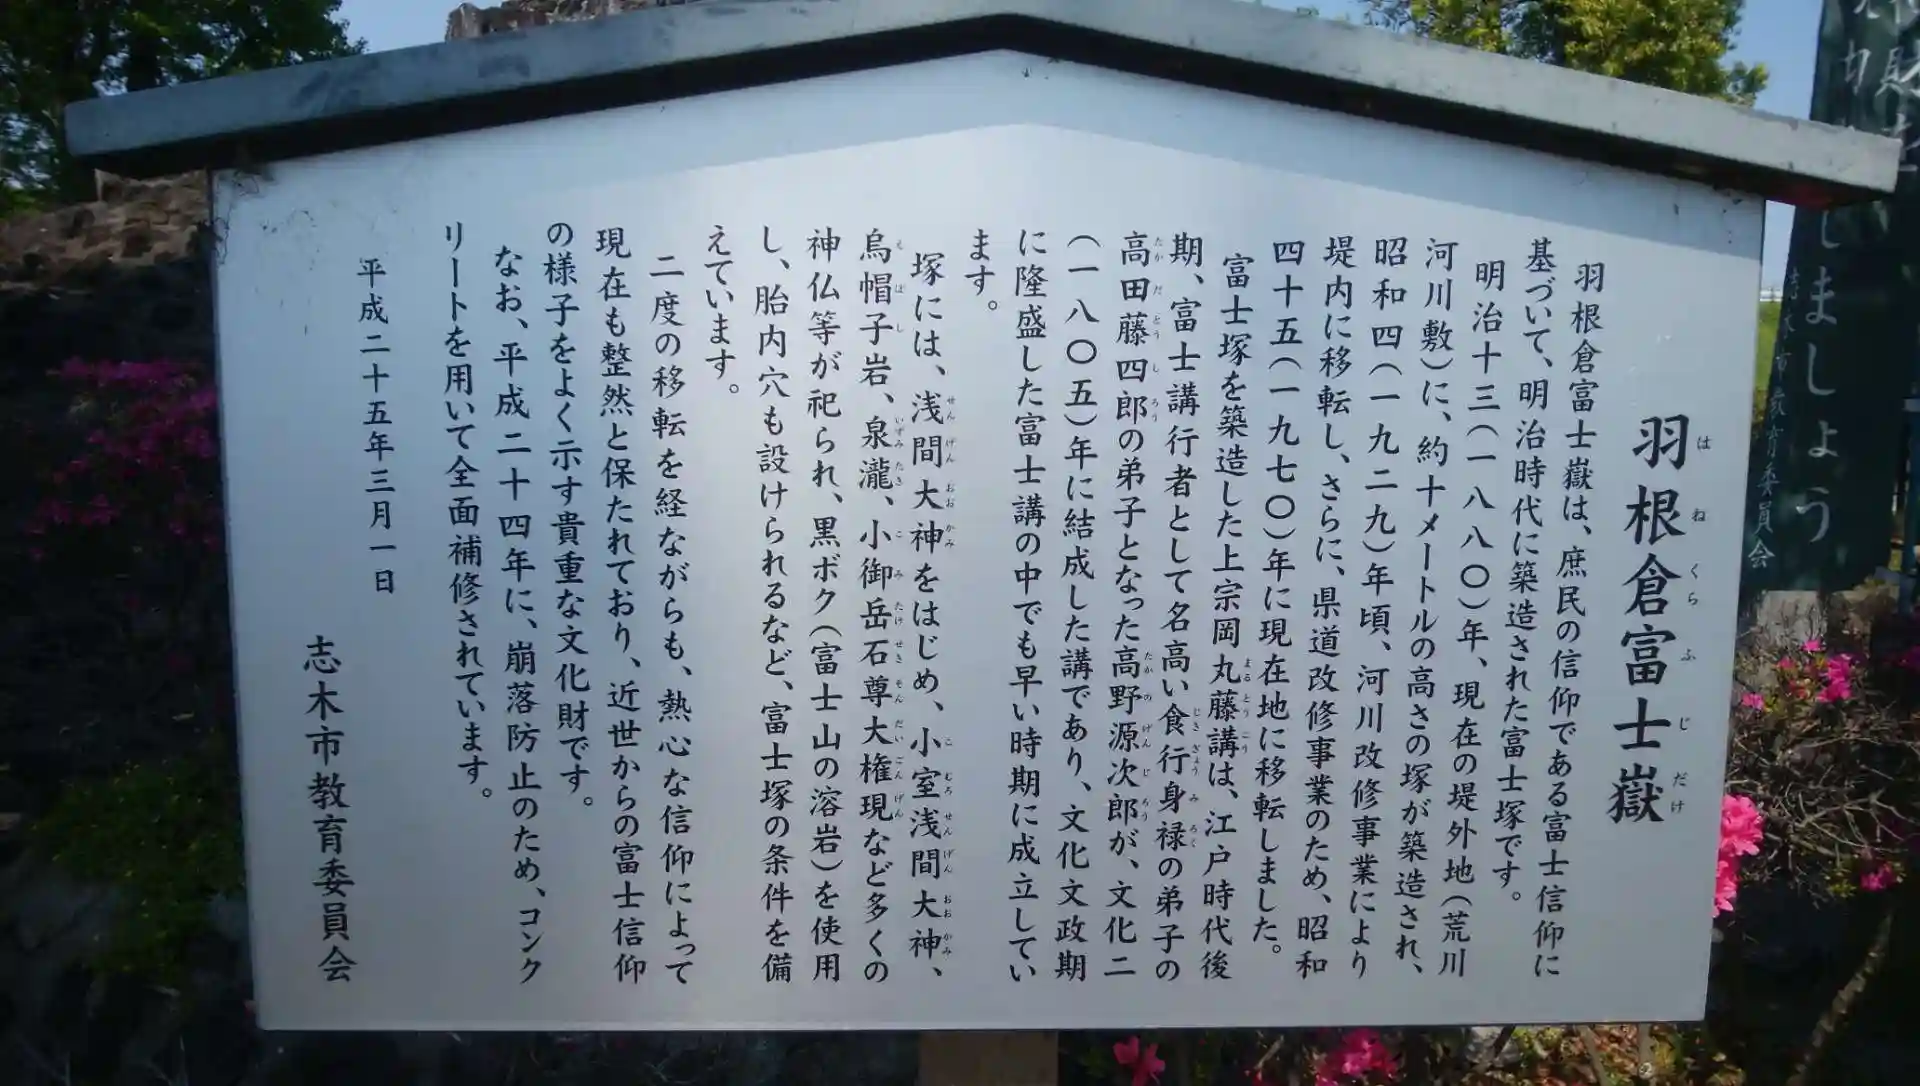 羽根倉富士嶽
はねくらふじだけ
羽根倉富士嶽は、庶民の信仰である富士信仰に
基づいて、明治時代に築造された富士塚です。
明治十三(一八八〇)年、現在の堤外地(荒川
河川敷)に、約十メートルの高さの塚が築造され、
昭和四(一九二九)年頃、河川改修事業により
堤内に移転し、さらに、県道改修事業のため、昭和
四十五(一九七〇)年に現在地に移転しました。
富士塚を築造した上宗岡丸藤講は、江戸時代後
まるとうこう
期、富士講行者として名高い食行身禄の弟子の
じきぎょうみろく
高田藤四郎の弟子となった高野源次郎が、文化二
たかだとうしろう
たかのげんじろう
(一八〇五)年に結成した講であり、文化文政期
に隆盛した富士講の中でも早い時期に成立してい
ます。
塚には、浅間大神をはじめ、小室浅間大神、
せんげんおおかみ
こむろせんげんおおかみ
烏帽子岩、泉瀧、小御岳石尊大権現など多くの
えぼし
いずみたき
こみたけせきそんだいごんげん
神仏等が祀られ、黒ボク(富士山の溶岩)を使用
し、胎内穴も設けられるなど、富士塚の条件を備
えています。
二度の移転を経ながらも、熱心な信仰によって
現在も整然と保たれており、近世からの富士信仰
の様子をよく示す貴重な文化財です。
なお、平成二十四年に、崩落防止のため、コンク
リートを用いて全面補修されています。
平成二十五年三月一日
志木市教育委員会
しましょう
市教育委員会